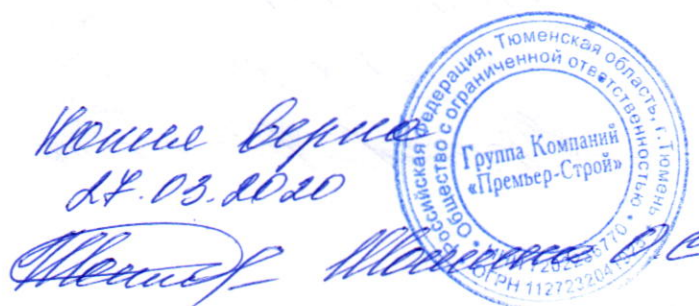 Копия верна
27.03.2020
Российская Федерация, Тюменская область, г.Тюмень
Общество с ограниченной ответственностью
Группа Компаний
«Премьер-Строй»
ОГРН